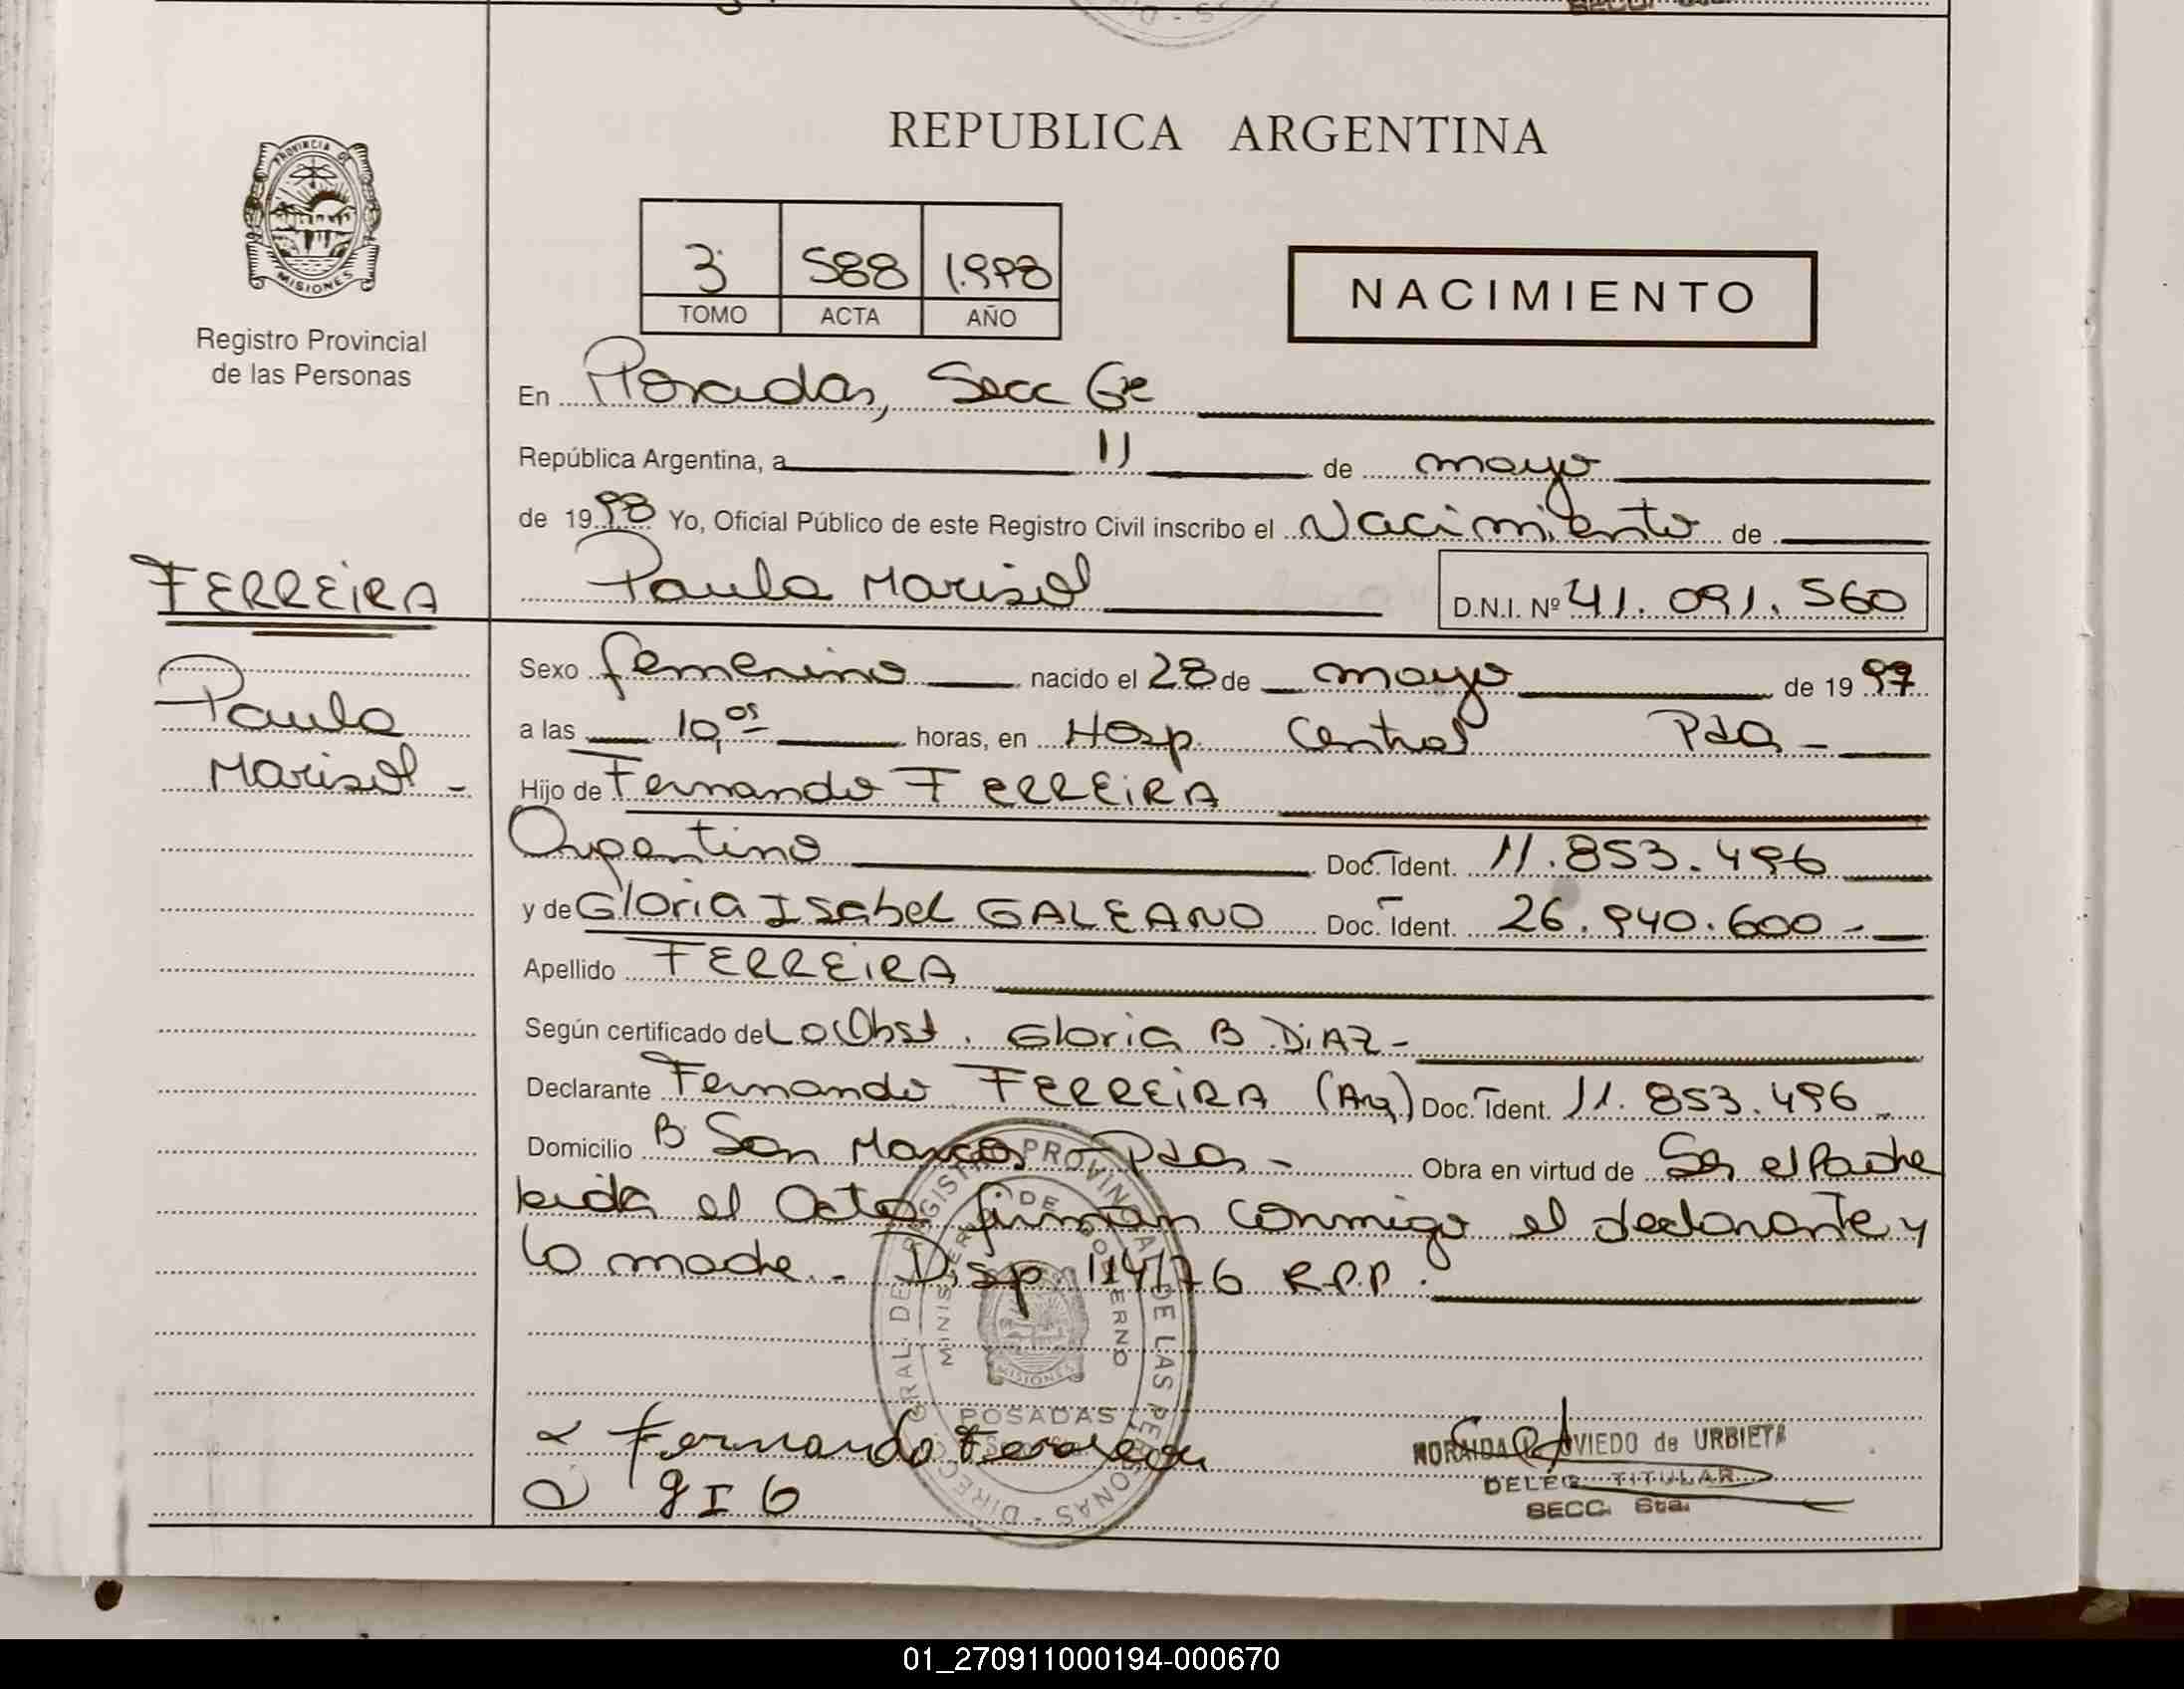 REPUBLICA ARGENTINA
PROVINCIA DE
MISIONES
Registro Provincial
de las Personas
3 588 1.998
TOMO ACTA AÑO
NACIMIENTO
En Posadas, Secc 6ta
República Argentina, a 11 de mayo
de 1998 Yo, Oficial Público de este Registro Civil inscribo el Nacimiento de
FERREIRA
Paula Marisol D.N.I. Nº 41.091.560
Paula
Marisol -
Sexo femenino nacido el 28 de mayo de 1997
a las 10,05 horas, en Hosp. Central Pdas -
Hijo de Fernando FERREIRA
Argentino Doc. Ident. 11.853.496
y de Gloria Isabel GALEANO Doc. Ident. 26.940.600 -
Apellido FERREIRA
Según certificado de La Obst. Gloria B. DiAZ -
Declarante Fernando FERREIRA (Arg.) Doc. Ident. 11.853.496 -
Domicilio Bº San Marcos - Pdas - Obra en virtud de Ser el Padre
leida el Acta firman conmigo el declarante y
la madre.- Disp. 114/76 R.P.P.
DIRECC. GRAL. DE REGISTRO PROVINCIAL DE LAS PERSONAS
MINISTERIO DE GOBIERNO
MISIONES
POSADAS
Fernando Ferreira
G I G
NORAIDA OVIEDO de URBIETA
DELEG. TITULAR
SECC. 6ta.
01_270911000194-000670